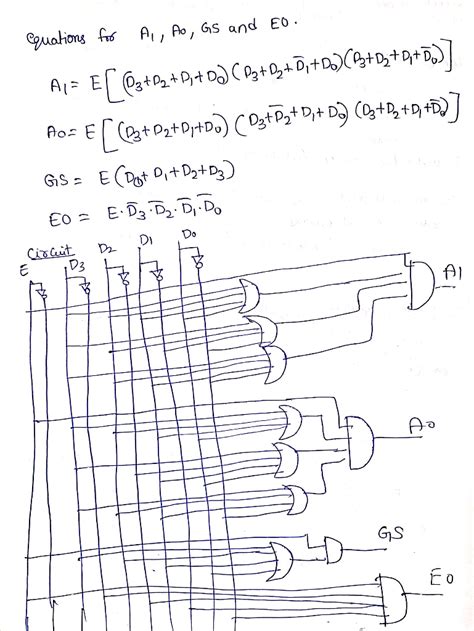 equations for A1, A0, GS and E0.
A1 = E[(D3+D2+D1+D0)(D3+D2+D̅1+D0)(D3+D2+D1+D̅0)]
A0 = E[(D3+D2+D1+D0)(D3+D̅2+D1+D0)(D3+D2+D1+D̅0)]
GS = E(D0+D1+D2+D3)
E0 = E·D̅3·D̅2·D̅1·D̅0
Circuit
E D3 D2 D1 D0
A1
A0
GS
E0